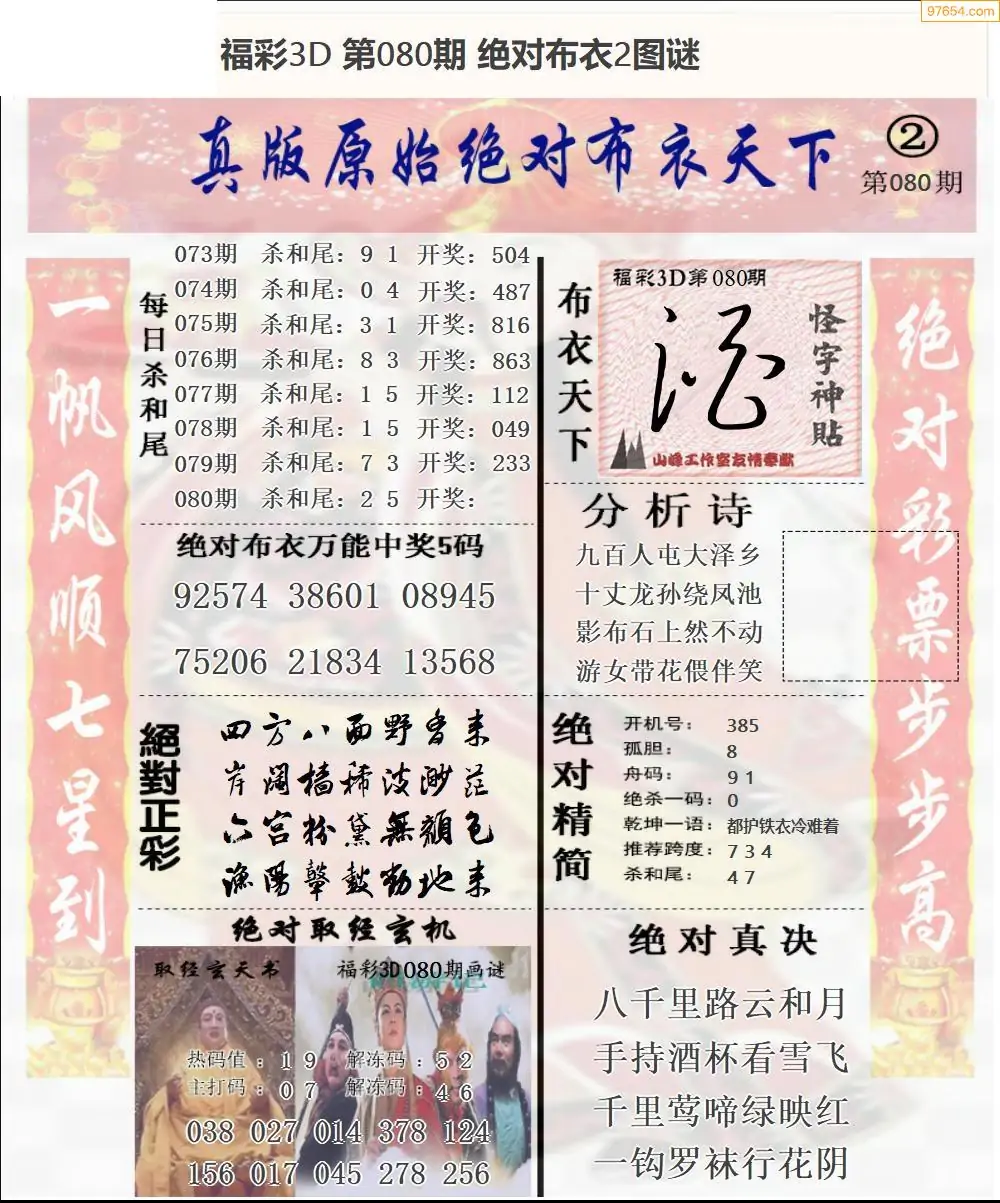 97654.com
福彩3D 第080期 绝对布衣2图谜
真版原始绝对布衣天下
②
第080期
一帆风顺七星到
每日杀和尾
073期 杀和尾：9 1 开奖：504
074期 杀和尾：0 4 开奖：487
075期 杀和尾：3 1 开奖：816
076期 杀和尾：8 3 开奖：863
077期 杀和尾：1 5 开奖：112
078期 杀和尾：1 5 开奖：049
079期 杀和尾：7 3 开奖：233
080期 杀和尾：2 5 开奖：
绝对布衣万能中奖5码
92574 38601 08945
75206 21834 13568
絕對正彩
四方八面野香来
岸阔樯稀波渺茫
六宫粉黛無顏色
漁陽鼙鼓動地来
绝对取经玄机
取经玄天书
福彩3D080期画谜
热码值：1 9 解冻码：5 2
主打码：0 7 解冻码：4 6
038 027 014 378 124
156 017 045 278 256
布衣天下
福彩3D第080期
怪字神贴
山峰工作室友情奉献
分析诗
九百人屯大泽乡
十丈龙孙绕凤池
影布石上然不动
游女带花偎伴笑
绝对精简
开机号： 385
孤胆： 8
舟码： 9 1
绝杀一码：0
乾坤一语：都护铁衣冷难着
推荐跨度：7 3 4
杀和尾： 4 7
绝对真决
八千里路云和月
手持酒杯看雪飞
千里莺啼绿映红
一钩罗袜行花阴
绝对彩票步步高